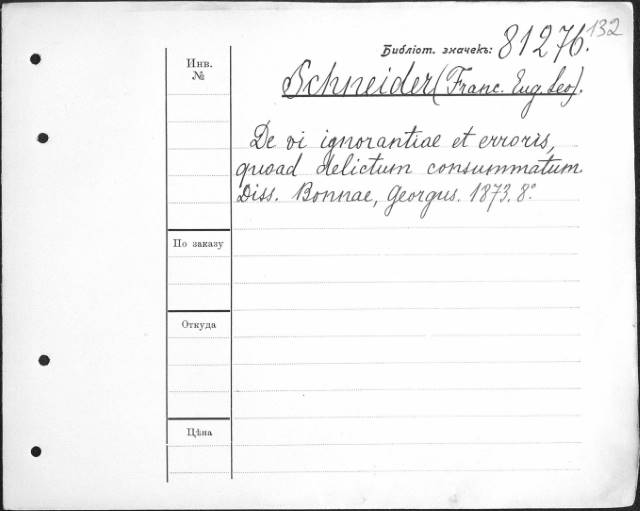 132
Библіот. значекъ: 81276.
Инв. №
Schneider (Franc. Eug. Leo).
De vi ignorantiae et erroris,
quoad delictum consummatum.
Diss. Bonnae, Georgus. 1873. 8°.
По заказу
Откуда
Цѣна